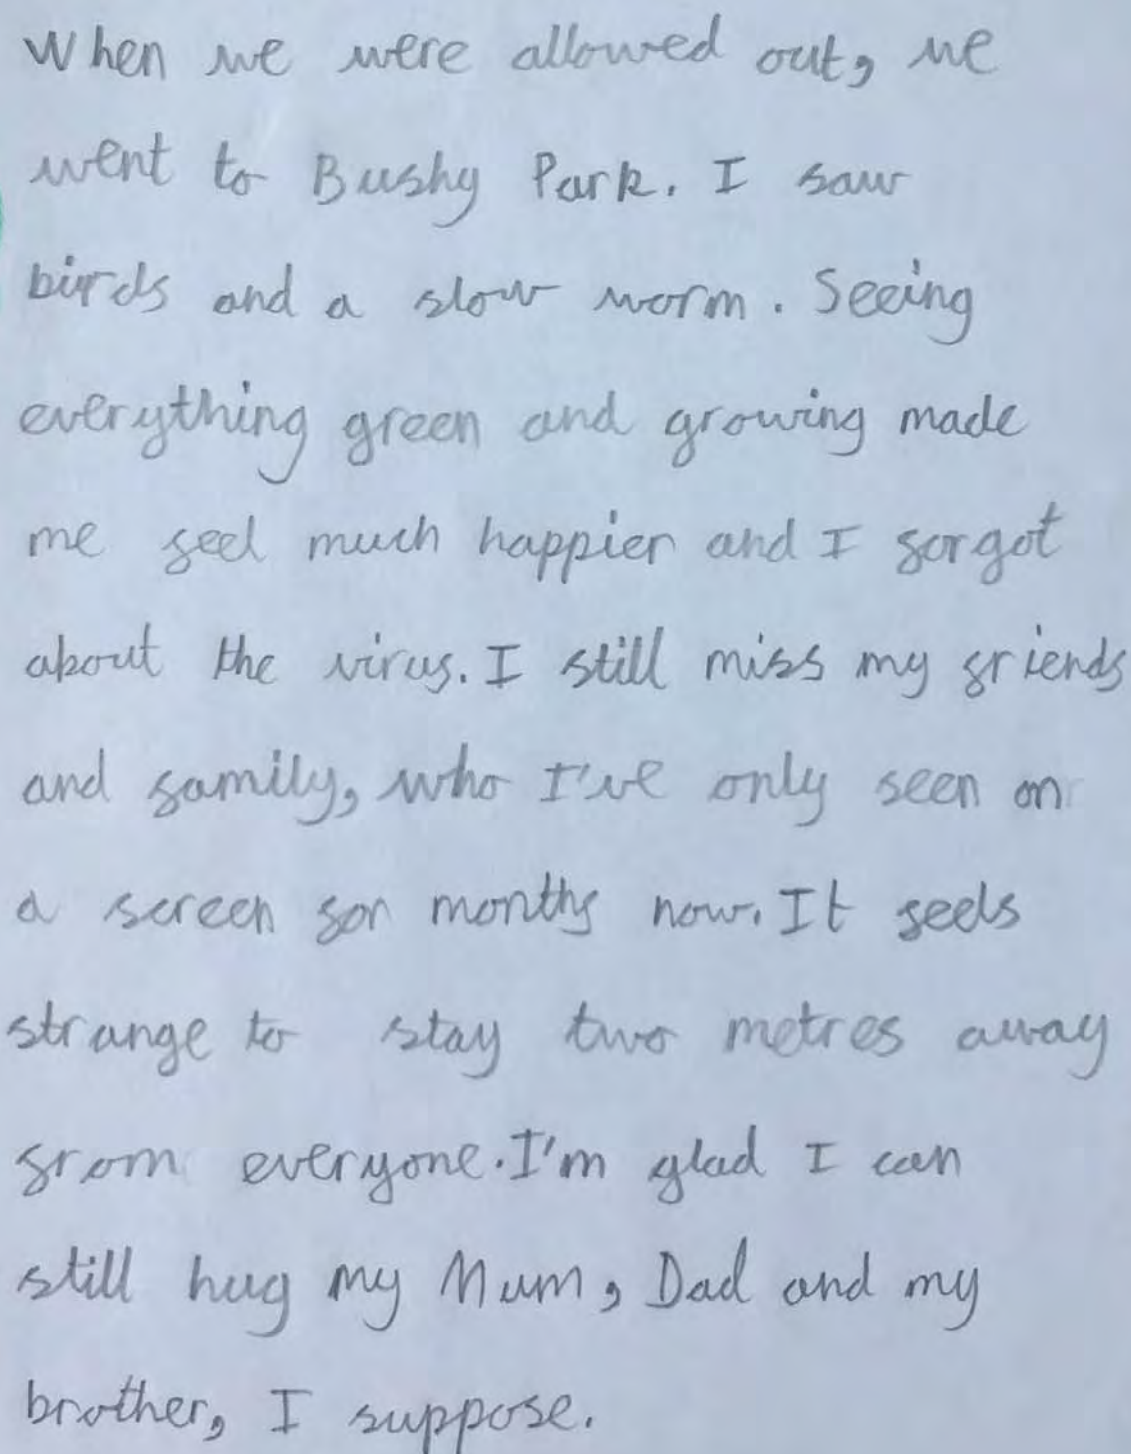 When we were allowed out, we
went to Bushy Park. I saw
birds and a slow worm. Seeing
everything green and growing made
me feel much happier and I forgot
about the virus. I still miss my friends
and family, who I've only seen on
a screen for months now. It feels
strange to stay two metres away
from everyone. I'm glad I can
still hug my Mum, Dad and my
brother, I suppose.